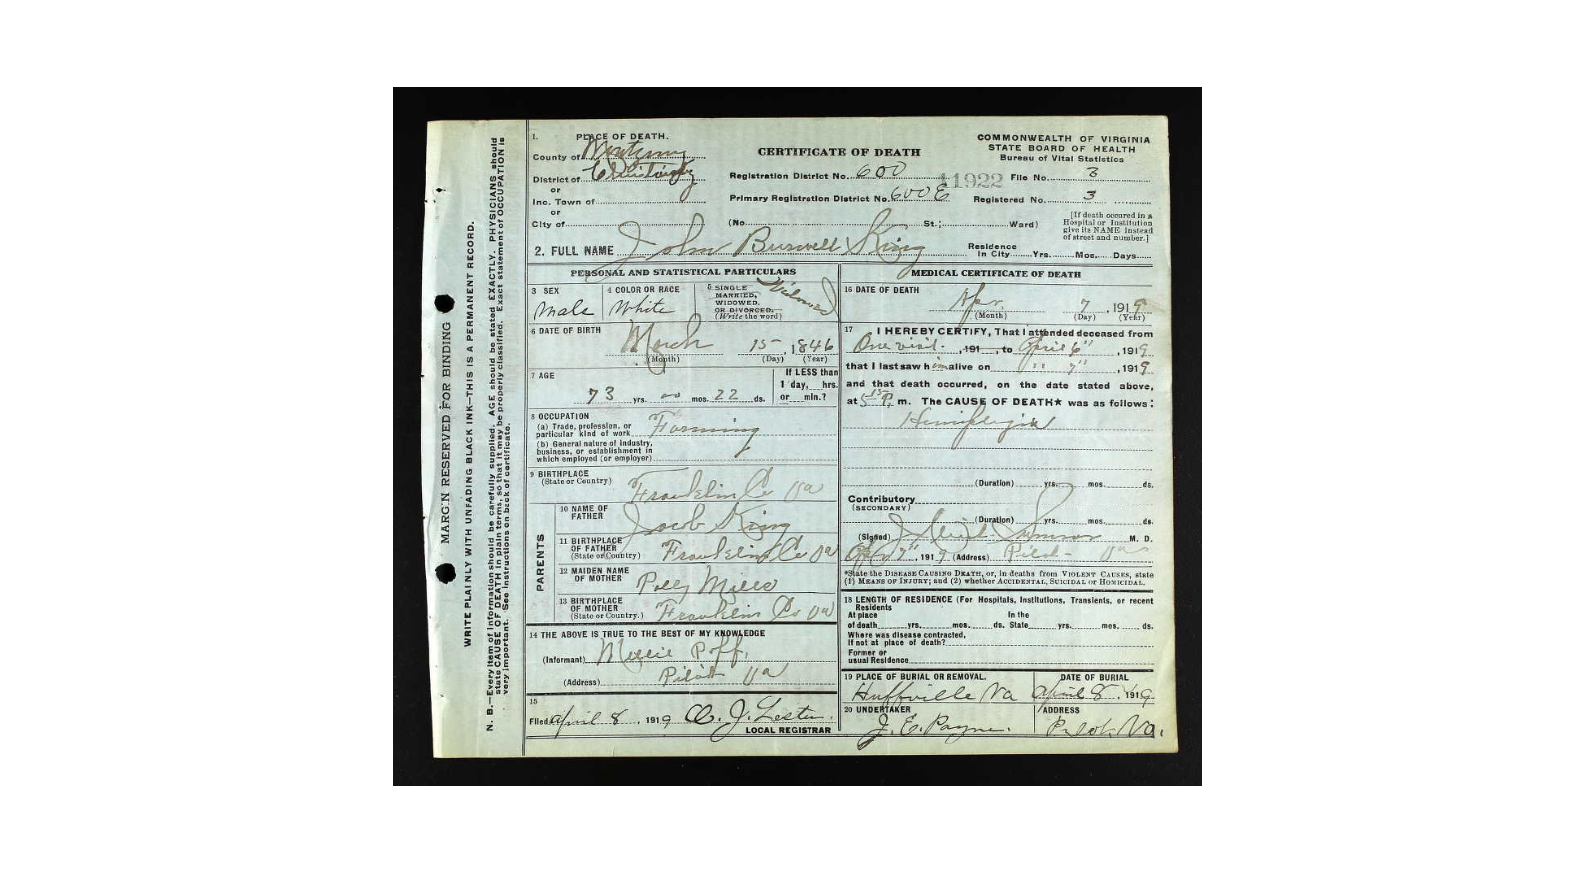 MARGIN RESERVED FOR BINDING
WRITE PLAINLY WITH UNFADING BLACK INK—THIS IS A PERMANENT RECORD.
N. B.—Every item of information should be carefully supplied. AGE should be stated EXACTLY. PHYSICIANS should
state CAUSE OF DEATH in plain terms, so that it may be properly classified. Exact statement of OCCUPATION is
very important. See instructions on back of certificate.
1. PLACE OF DEATH.
County of Montgomery
District of
or
Inc. Town of
or
City of
CERTIFICATE OF DEATH
COMMONWEALTH OF VIRGINIA
STATE BOARD OF HEALTH
Bureau of Vital Statistics
Registration District No. 600
11922 File No. 3
Primary Registration District No. 600E
Registered No. 3
(No. St.; Ward)
[If death occured in a
Hospital or Institution
give its NAME instead
of street and number.]
2. FULL NAME John Burwell King
Residence
In City Yrs. Mos. Days
PERSONAL AND STATISTICAL PARTICULARS
3 SEX
Male
4 COLOR OR RACE
White
5 SINGLE
MARRIED,
WIDOWED,
OR DIVORCED.
(Write the word)
Widowed
6 DATE OF BIRTH
March 15, 1846
(Month) (Day) (Year)
7 AGE
73 yrs. 00 mos. 22 ds.
If LESS than
1 day, hrs.
or min.?
8 OCCUPATION
(a) Trade, profession, or
particular kind of work Farming
(b) General nature of industry,
business, or establishment in
which employed (or employer)
9 BIRTHPLACE
(State or Country) Franklin Co Va
PARENTS
10 NAME OF
FATHER Jacob King
11 BIRTHPLACE
OF FATHER
(State or Country) Franklin Co Va
12 MAIDEN NAME
OF MOTHER Polly Mills
13 BIRTHPLACE
OF MOTHER
(State or Country.) Franklin Co Va
14 THE ABOVE IS TRUE TO THE BEST OF MY KNOWLEDGE
(Informant) Poff,
(Address) Pilot Va
15
Filed April 8, 1919 J. Lester.
LOCAL REGISTRAR
MEDICAL CERTIFICATE OF DEATH
16 DATE OF DEATH
Apr. 7, 1919
(Month) (Day) (Year)
17 I HEREBY CERTIFY, That I attended deceased from
One visit., 191, to April 6", 1919
that I last saw him alive on " 7", 1919
and that death occurred, on the date stated above,
at P. m. The CAUSE OF DEATH★ was as follows:
Hemiplegia
(Duration) yrs. mos. ds.
Contributory
(SECONDARY)
(Duration) yrs. mos. ds.
(Signed) M. D.
Apr 7", 1919 (Address) Pilot Va
*State the DISEASE CAUSING DEATH, or, in deaths from VIOLENT CAUSES, state
(1) MEANS OF INJURY; and (2) whether ACCIDENTAL, SUICIDAL or HOMICIDAL.
18 LENGTH OF RESIDENCE (For Hospitals, Institutions, Transients, or recent
Residents
At place In the
of death yrs. mos. ds. State yrs. mos. ds.
Where was disease contracted,
If not at place of death?
Former or
usual Residence
19 PLACE OF BURIAL OR REMOVAL. DATE OF BURIAL
Huffville Va April 8, 1919
20 UNDERTAKER ADDRESS
J. E. Payne. Pilot, Va.